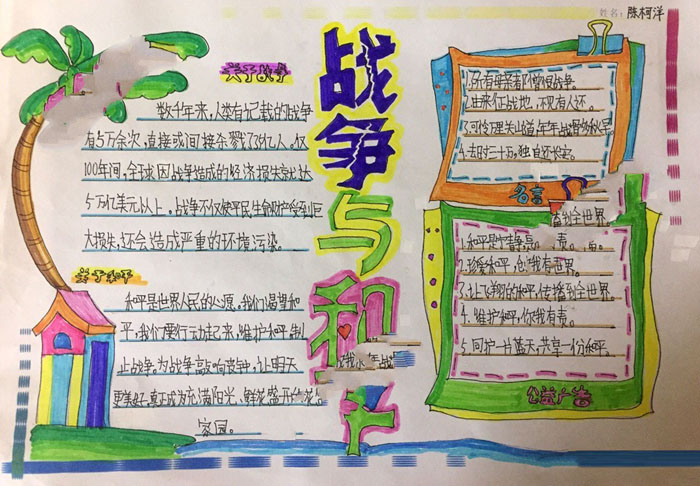 姓名：陈柯洋
战争与和平
关于战争
数千年来，人类有记载的战争
有5万余次，直接或间接杀戮了3亿人。仅
100年间，全球因战争造成的经济损失就达
5万亿美元以上。战争不仅使平民生命财产受到巨
大损失，还会造成严重的环境污染。
关于和平
和平是世界人民的心愿。我们渴望和
平，我们要行动起来，维护和平，制
止战争，为战争敲响丧钟，让明天
更美好，真正成为充满阳光，鲜花盛开的
家园。
1.所有母亲都憎恨战争。
2.由来征战地，不见有人还。
3.可怜万里关山道，年年战骨多秋草。
4.去时三十万，独自还长安。
名言
播到全世界
1.和平是
2.珍爱和平，创我有世界。
3.让飞翔的和平，传播到全世界。
4.维护和平，你我有责。
5.同护一片蓝天，共享一份和平。
公益广告